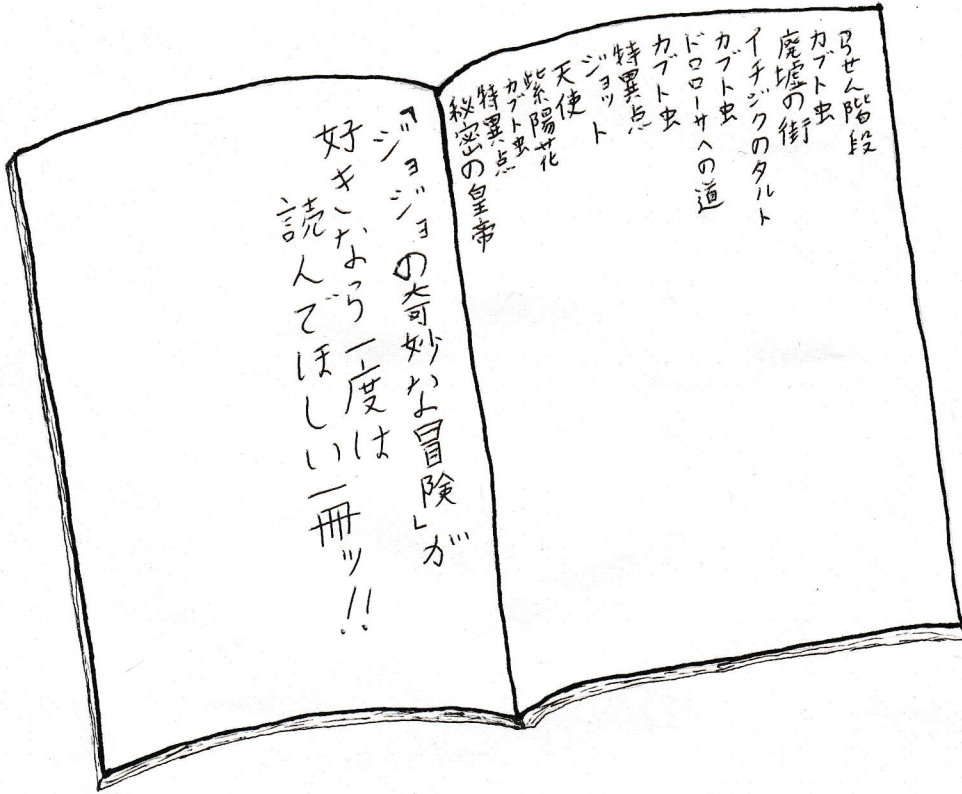 らせん階段
カブト虫
廃墟の街
イチジクのタルト
カブト虫
ドロローサへの道
カブト虫
特異点
ジョット
天使
紫陽花
カブト虫
特異点
秘密の皇帝
「ジョジョの奇妙な冒険」が
好きなら一度は
読んでほしい一冊ッ!!